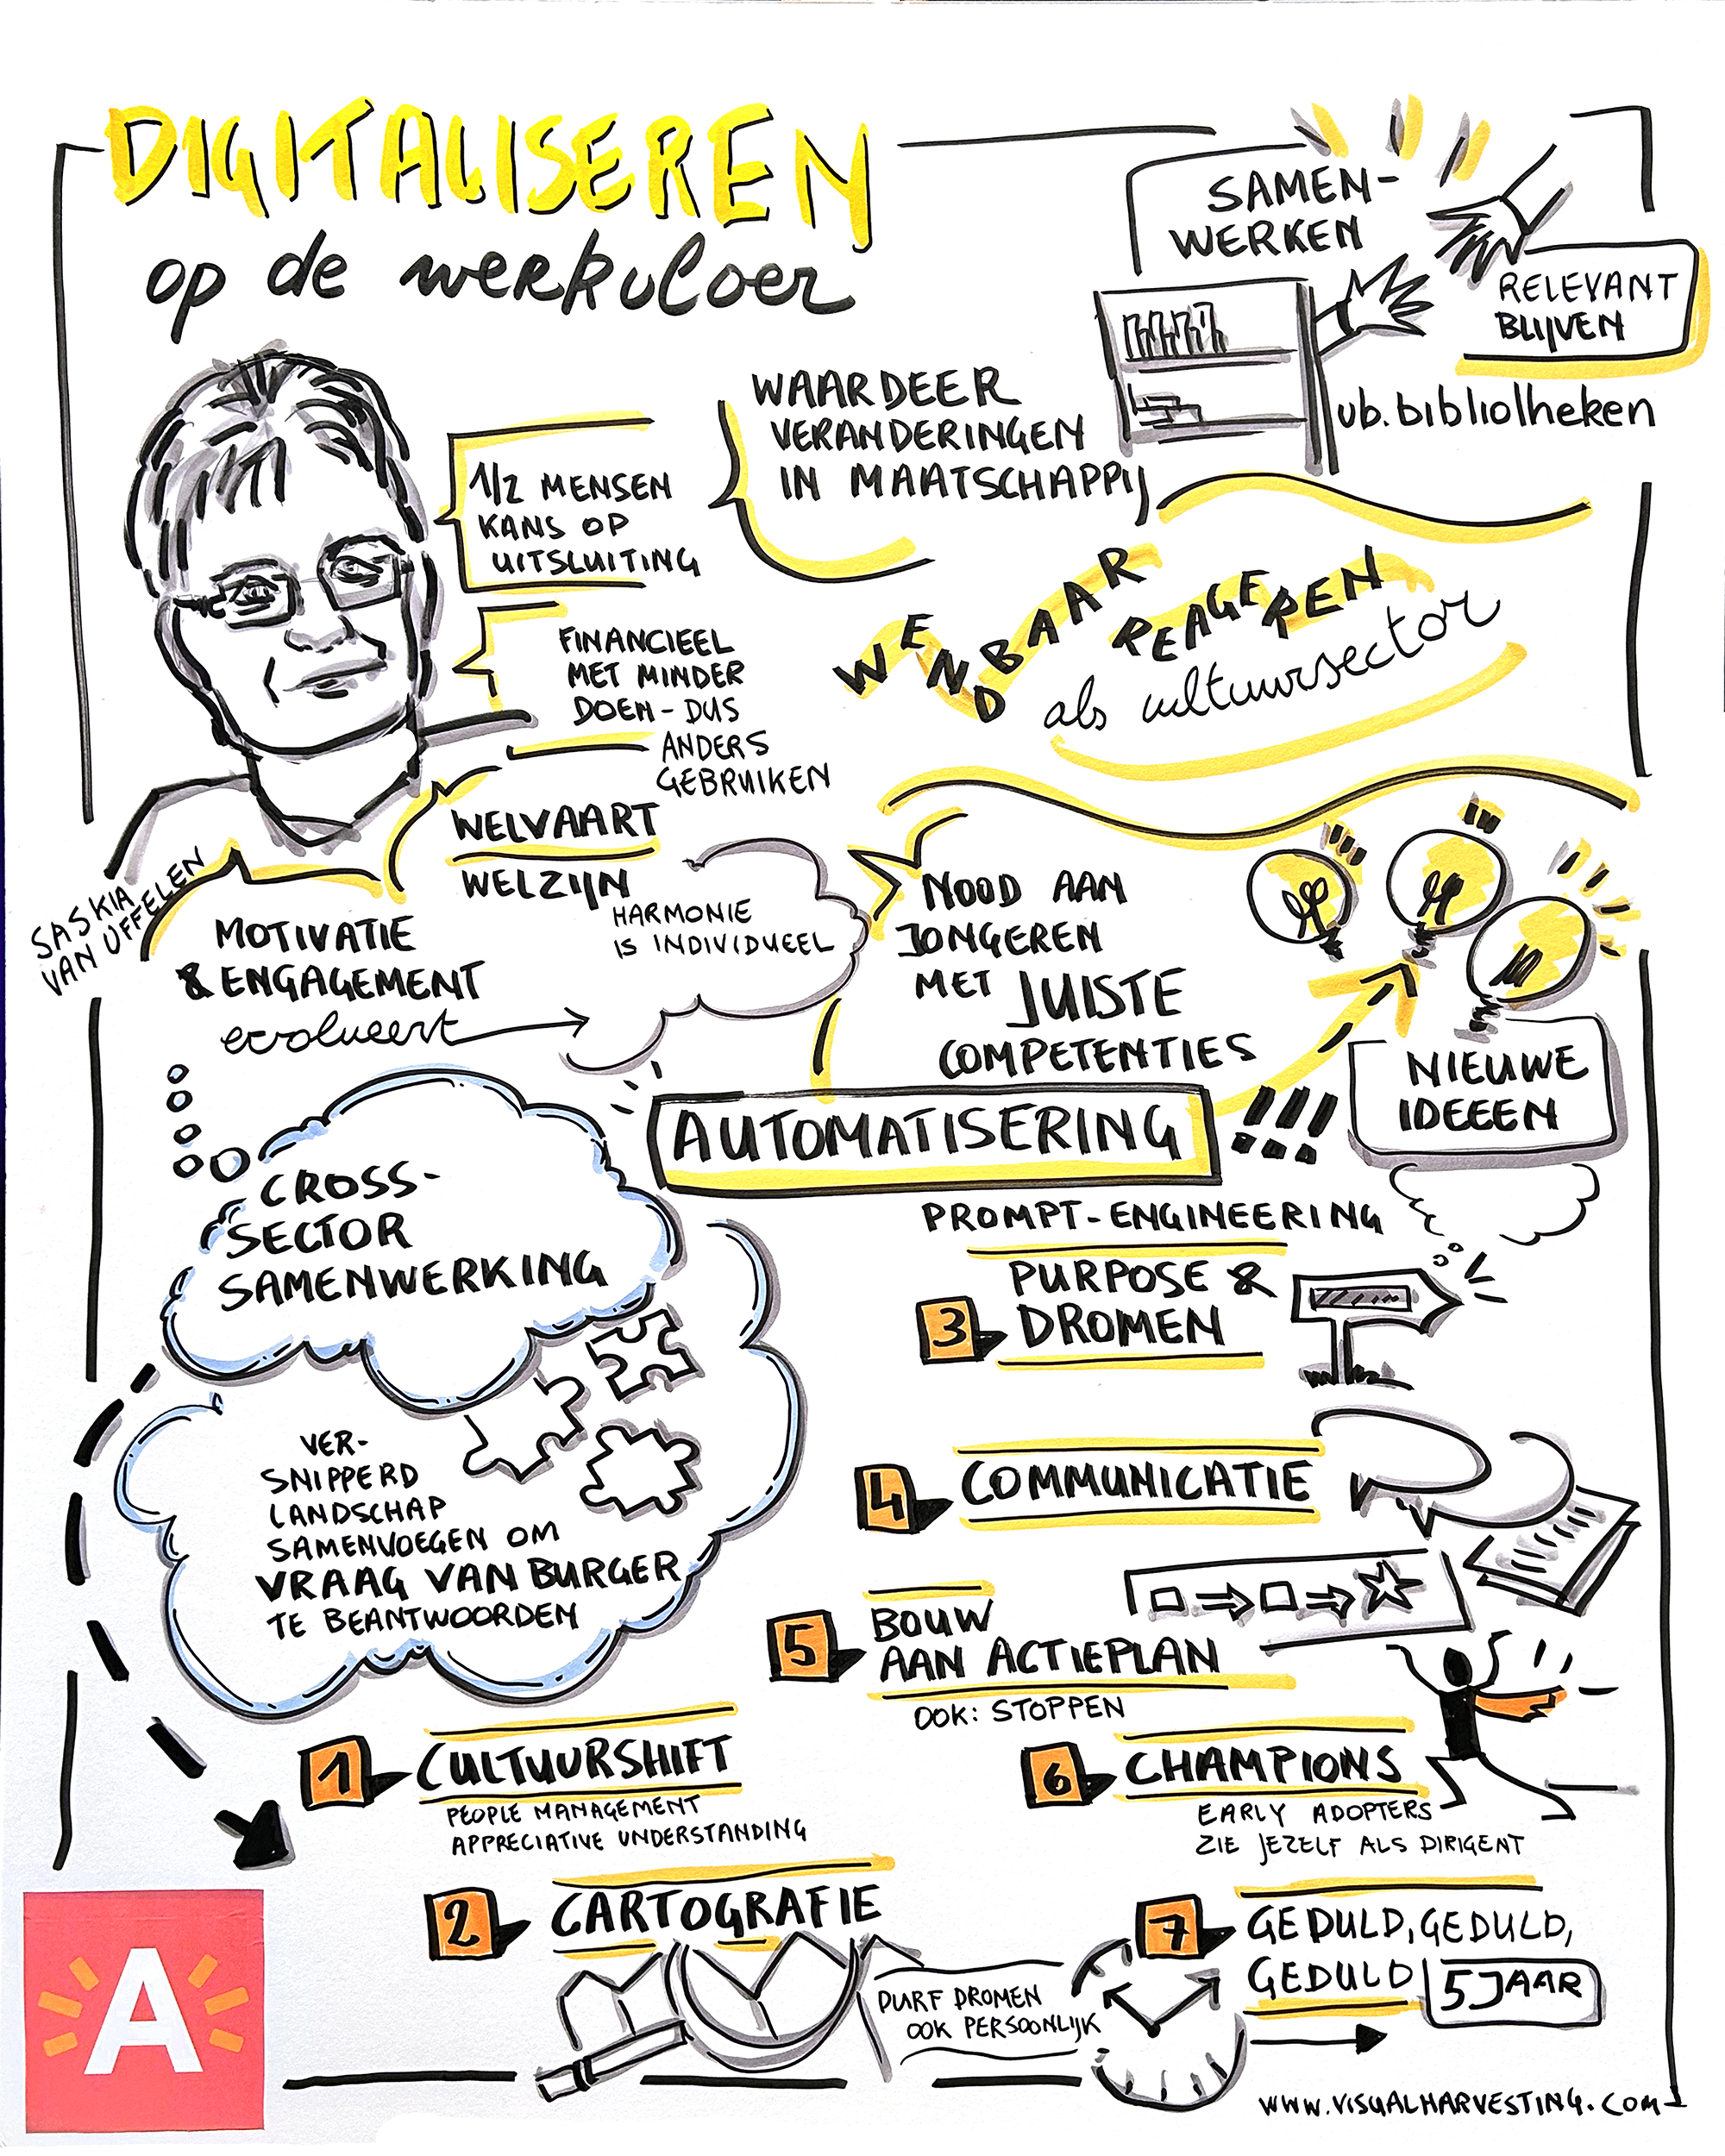 DIGITALISEREN
op de werkvloer
SAMEN-
WERKEN
RELEVANT
BLIJVEN
vb. bibliotheken
WAARDEER
VERANDERINGEN
IN MAATSCHAPPIJ
1/2 MENSEN
KANS OP
UITSLUITING
FINANCIEEL
MET MINDER
DOEN - DUS
ANDERS
GEBRUIKEN
WENDBAAR
REAGEREN
als cultuursector
WELVAART
WELZIJN
SASKIA
VAN UFFELEN
MOTIVATIE
& ENGAGEMENT
evolueert
HARMONIE
IS INDIVIDUEEL
NOOD AAN
JONGEREN
MET JUISTE
COMPETENTIES
AUTOMATISERING
!!!
NIEUWE
IDEEEN
PROMPT-ENGINEERING
CROSS-
SECTOR
SAMENWERKING
VER-
SNIPPERD
LANDSCHAP
SAMENVOEGEN OM
VRAAG VAN BURGER
TE BEANTWOORDEN
1 CULTUURSHIFT
PEOPLE MANAGEMENT
APPRECIATIVE UNDERSTANDING
2 CARTOGRAFIE
DURF DROMEN
OOK PERSOONLIJK
3 PURPOSE &
DROMEN
4 COMMUNICATIE
5 BOUW
AAN ACTIEPLAN
OOK: STOPPEN
6 CHAMPIONS
EARLY ADOPTERS
ZIE JEZELF ALS DIRIGENT
7 GEDULD, GEDULD,
GEDULD
5 JAAR
A
WWW.VISUALHARVESTING.COM